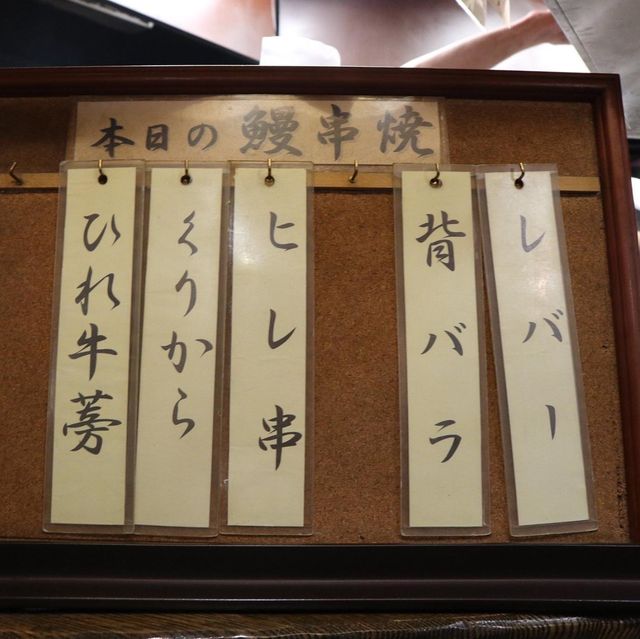 本日の鰻串焼
レバー
背バラ
ヒレ串
くりから
ひれ牛蒡